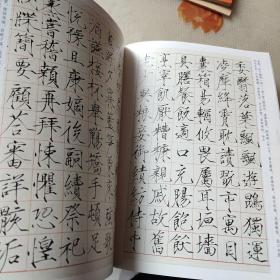 委翳落葉飄颻遊鵾獨運
凌摩絳霄耽讀翫市寓目
囊箱易輶攸畏屬耳垣牆
具膳餐飯適口充腸飽飫
烹宰飢厭糟糠親戚故舊
接杯舉觴矯手頓足
悅豫且康嫡後嗣續祭祀
蒸嘗稽顙再拜悚懼恐惶
牋牒簡要顧答審詳骸垢